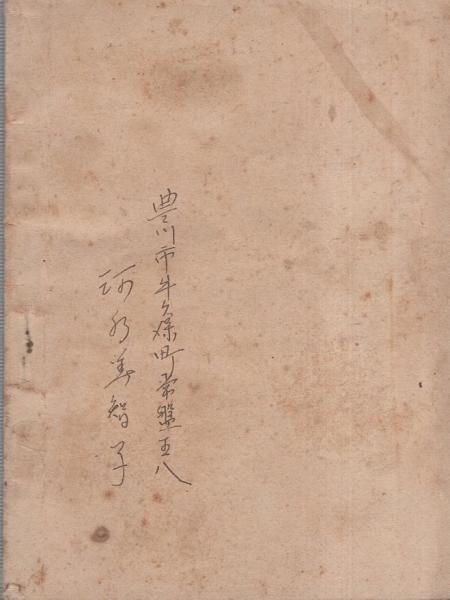 豊川市牛久保町常盤五八
河合美智子